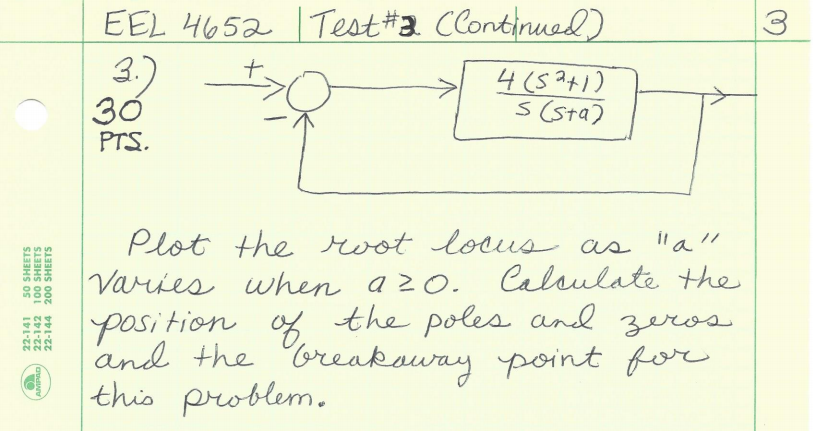 EEL 4652 Test #3 (Continued) 3
3.)
30
PTS.
+
−
4(s²+1)
s(s+a)
Plot the root locus as "a"
varies when a≥0. Calculate the
position of the poles and zeros
and the breakaway point for
this problem.
22-141 50 SHEETS
22-142 100 SHEETS
22-144 200 SHEETS
AMPAD